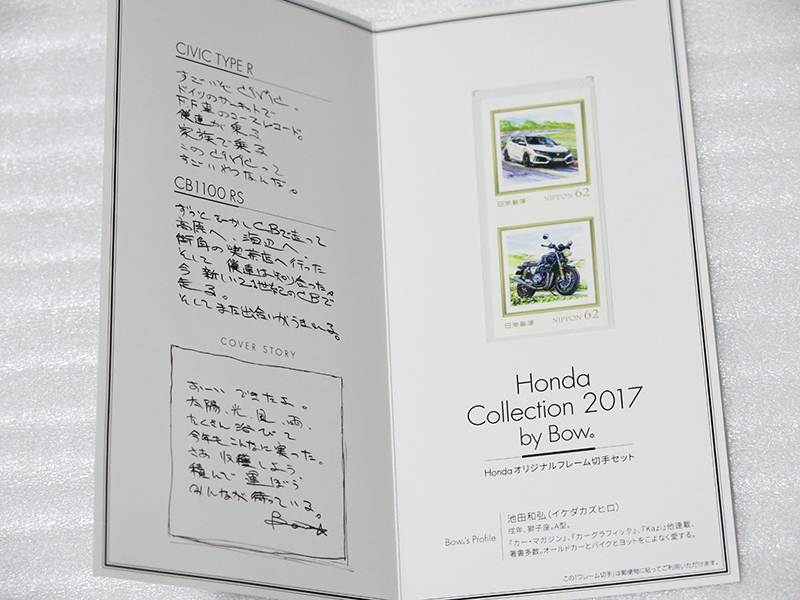 CIVIC TYPE R
すごいぞ CIVIC。
ドイツのサーキットで
FF車のコースレコード。
僕達が乗る
家族で乗る
このCIVICって
すごいやつなんだ。
CB1100 RS
ずっとむかしCBで走って
高原へ、海辺へ、
街角の喫茶店へ行った
そして 僕達は知り合った。
今 新しい21世紀のCBで
走る。
そしてまた出会いがうまれる。
COVER STORY
おーい できたよ。
太陽、光、風、雨、
たくさん浴びて
今年もこんなに実った。
さあ 収穫しよう
積んで 運ぼう
みんなが待っている。
日本郵便 NIPPON 62
日本郵便 NIPPON 62
Honda
Collection 2017
by Bow。
Hondaオリジナルフレーム切手セット
Bow。's Profile
池田和弘（イケダカズヒロ）
戌年、獅子座。A型。
『カー・マガジン』、『カーグラフィック』、『Kazi』他連載、
著書多数。オールドカーとバイクとヨットをこよなく愛する。
この「フレーム切手」は郵便物に貼ってご利用いただけます。